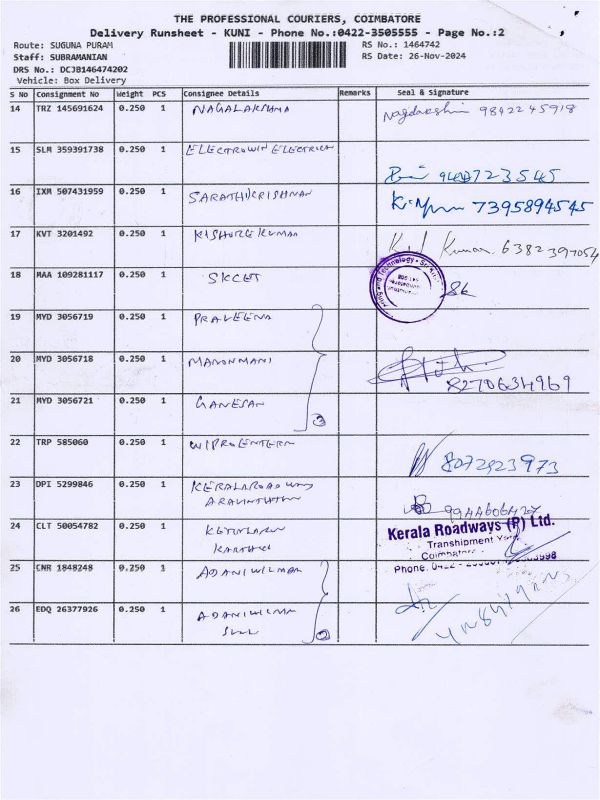 THE PROFESSIONAL COURIERS, COIMBATORE
Delivery Runsheet - KUNI - Phone No.:0422-3505555 - Page No.:2
Route: SUGUNA PURAM RS No.: 1464742
Staff: SUBRAMANIAN RS Date: 26-Nov-2024
DRS No.: DCJB146474202
Vehicle: Box Delivery
S No Consignment No Weight PCS Consignee Details Remarks Seal & Signature
14 TRZ 145691624 0.250 1 NAGALAKSHMA 9842245918
15 SLM 359391738 0.250 1 ELECTROWIN ELECTRICA
723545
16 IXM 507431959 0.250 1 SARATHIKRISHNAN 7395894545
17 KVT 3201492 0.250 1 KISHORE KUMAR Kumar 6382397054
18 MAA 109281117 0.250 1 SKCET
19 MYD 3056719 0.250 1 PRAVEENA
20 MYD 3056718 0.250 1 MANONMANI
8270634969
21 MYD 3056721 0.250 1 GANESAN
22 TRP 585060 0.250 1 WIPRO ENTERN
8072923973
23 DPI 5299846 0.250 1 KERALA ROADWAYS
ARAVINTHTHN
24 CLT 50054782 0.250 1
KARTHIC
Kerala Roadways (P) Ltd.
Transhipment Yard,
Coimbatore
Phone: 0422 -
25 CNR 1848248 0.250 1 ADANI WILMAR
26 EDQ 26377926 0.250 1 ADANI WILMAR